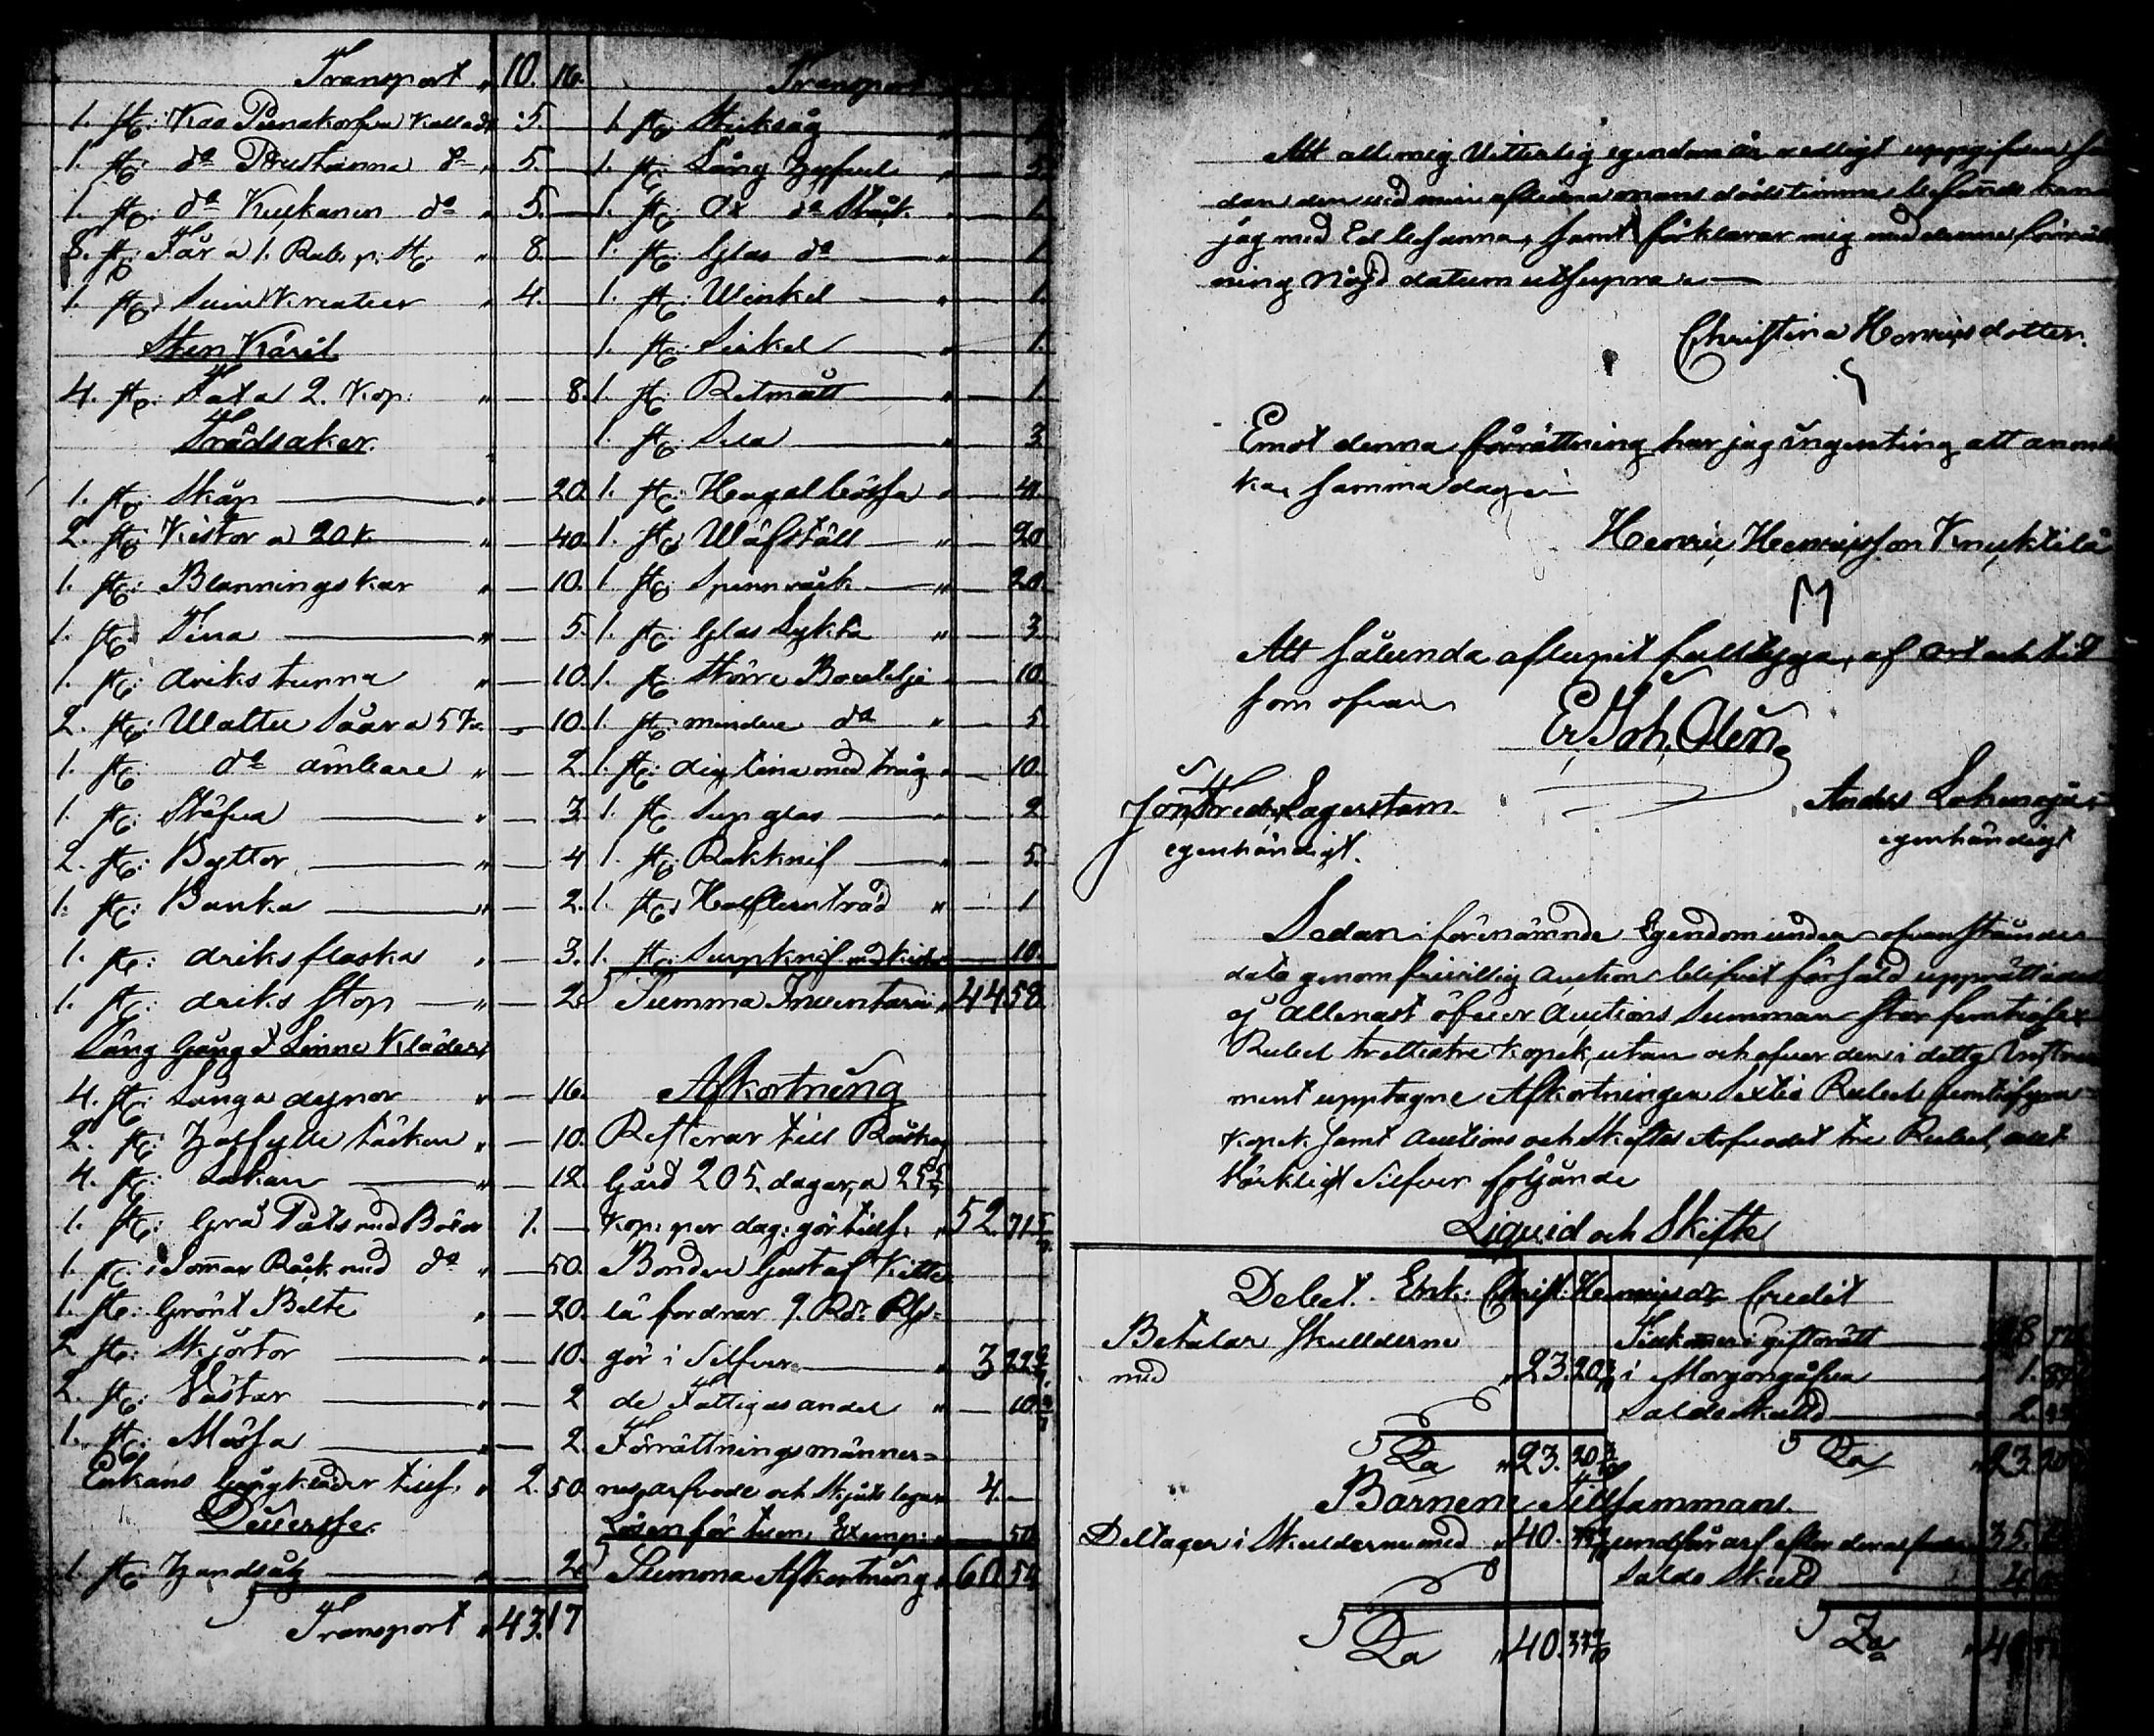 Transport " 10. 16.
1. st: Koo Punakorfva Kallad " 5. —
1. st: do Brustanna do " 5. —
1. st: do Kuckanen do " 5. —
8. st: Får a 1. Rub. p: st: " 8. —
1. st: Suin Kreatur " 4. —
Sten Käril
4. st: Fat a 2. Kop: " — 8.
Trädsaker.
1. st: Skåp " — 20.
2. st: Kistor a 20 k " — 40.
1. st: Blanningskar " — 10.
1. st: Tina " — 5.
1. st: driks tunna " — 10.
2. st: Watten Såar a 5 K. " — 10.
1. st: do ämbare " — 2.
1. st: Stäfva " — 3.
2. st: Byttor " — 4
1. st: Banka " — 2.
1. st: driksflaska " — 3.
1. st: driks stop " — 2.
Säng Gång & Linne Kläder
4. st: Sänga dynor " — 16.
2. st: täcken " — 10.
4. st: Lakan " — 12.
1. st: Grå med 1. —
1. st: Sommar Råck med do " — 50.
1. st: Grönt Bälte " — 20.
2 st: Skjortor " — 10.
2. st: Västar " — 2
1. st: Mössa " — 2.
Enkans Gångkläder tills. " 2. 50.
Diversse.
1. st: Handsåg " — 2
Transport " 43. 17
Transport
1. st: Sticksåg " — 1.
1. st: Lång Hyfvel " — 5.
1. st: Ox do Skaft " — 1.
1. st: Glas do " — 1
1. st: Winkel " — 1.
1. st: Sirkel " — 1.
1. st: Ritmått " — 1.
1. st: Sila " — 3
1. st: Hagelbössa " — 40.
1. st: Wäfställ " — 20
1. st: Spinnråck " — 20.
1. st: Glas Lykta " — 3
1. st: större Boutelje " — 10.
1. st: mindre do " — 5
1. st: digtina med tråg " — 10.
1. st: Supglas " — 2
1. st: Rakknif " — 5.
1. st: " — 1
1. st: " — 10.
Summa Inventarii " 44 58.
Afkortning
Resterar till Råthog
Gård 205. dagar, a 25 5/7
Kop: per dag: gör tills. " 52. 71 5/7
Bonden Gustaf Kitte
lä fordrar 9. Rdr Rgs
gör i Silfver " 3
de Fattigas andel " — 10
Förrättningsmänner=
nes arfvode och Skjuts legan 4. —
Lösen för tven Exempl: " — 50
Summa Afkortning " 60. 54
Att all mig Vitterlig egendom är redligt uppgifven så
dan den vid min aflednamans dödstimma befanns kan
jag med Ed besanna, samt förklarar mig med denne förrätt
ning nöjd datum utsupra.
Christina Henricsdotter.
Emot denna förrättning har jag ingenting att anmär
ka, samma dag.
Henric Henricsson Knuktilä
Att sålunda aflupit fullbyga, af ort och tid
som ofvan
Er, Joh, Olin,
Jon, Fredr, Lagerstam.
egenhändigt.
Anders
egenhändigt
Sedan förenämnde Egendom under ofvanstående
dato genom frivillig Auction blifvit försåld upprättades
ej allenast öfver Auctions Summan stor femtiosex
Rubel trettiotre Kopek, utan och öfver den i dette Instru
ment upptagne Afkortningen Sextio Rubel femtiofyra
Kopek samt Auctions och Skiftes Arfvodet tre Rubel, allt
Värkligt Silfver följande
Liquid och Skifte
Debet. Enk: Christ: Henricsdr Credit
Betalar Skullderne
med " 23. 20
i giftorätt
i Morgongåfva " 1.
Saldo Skuld " 2.
Sa " 23. 20
Sa " 23. 20
Barnene Tillsammans.
Deltager i Skulderne med " 40.
undfår arf efter deras fader 35.
Saldo Skuld 4
Sa " 40.
Sa " 40